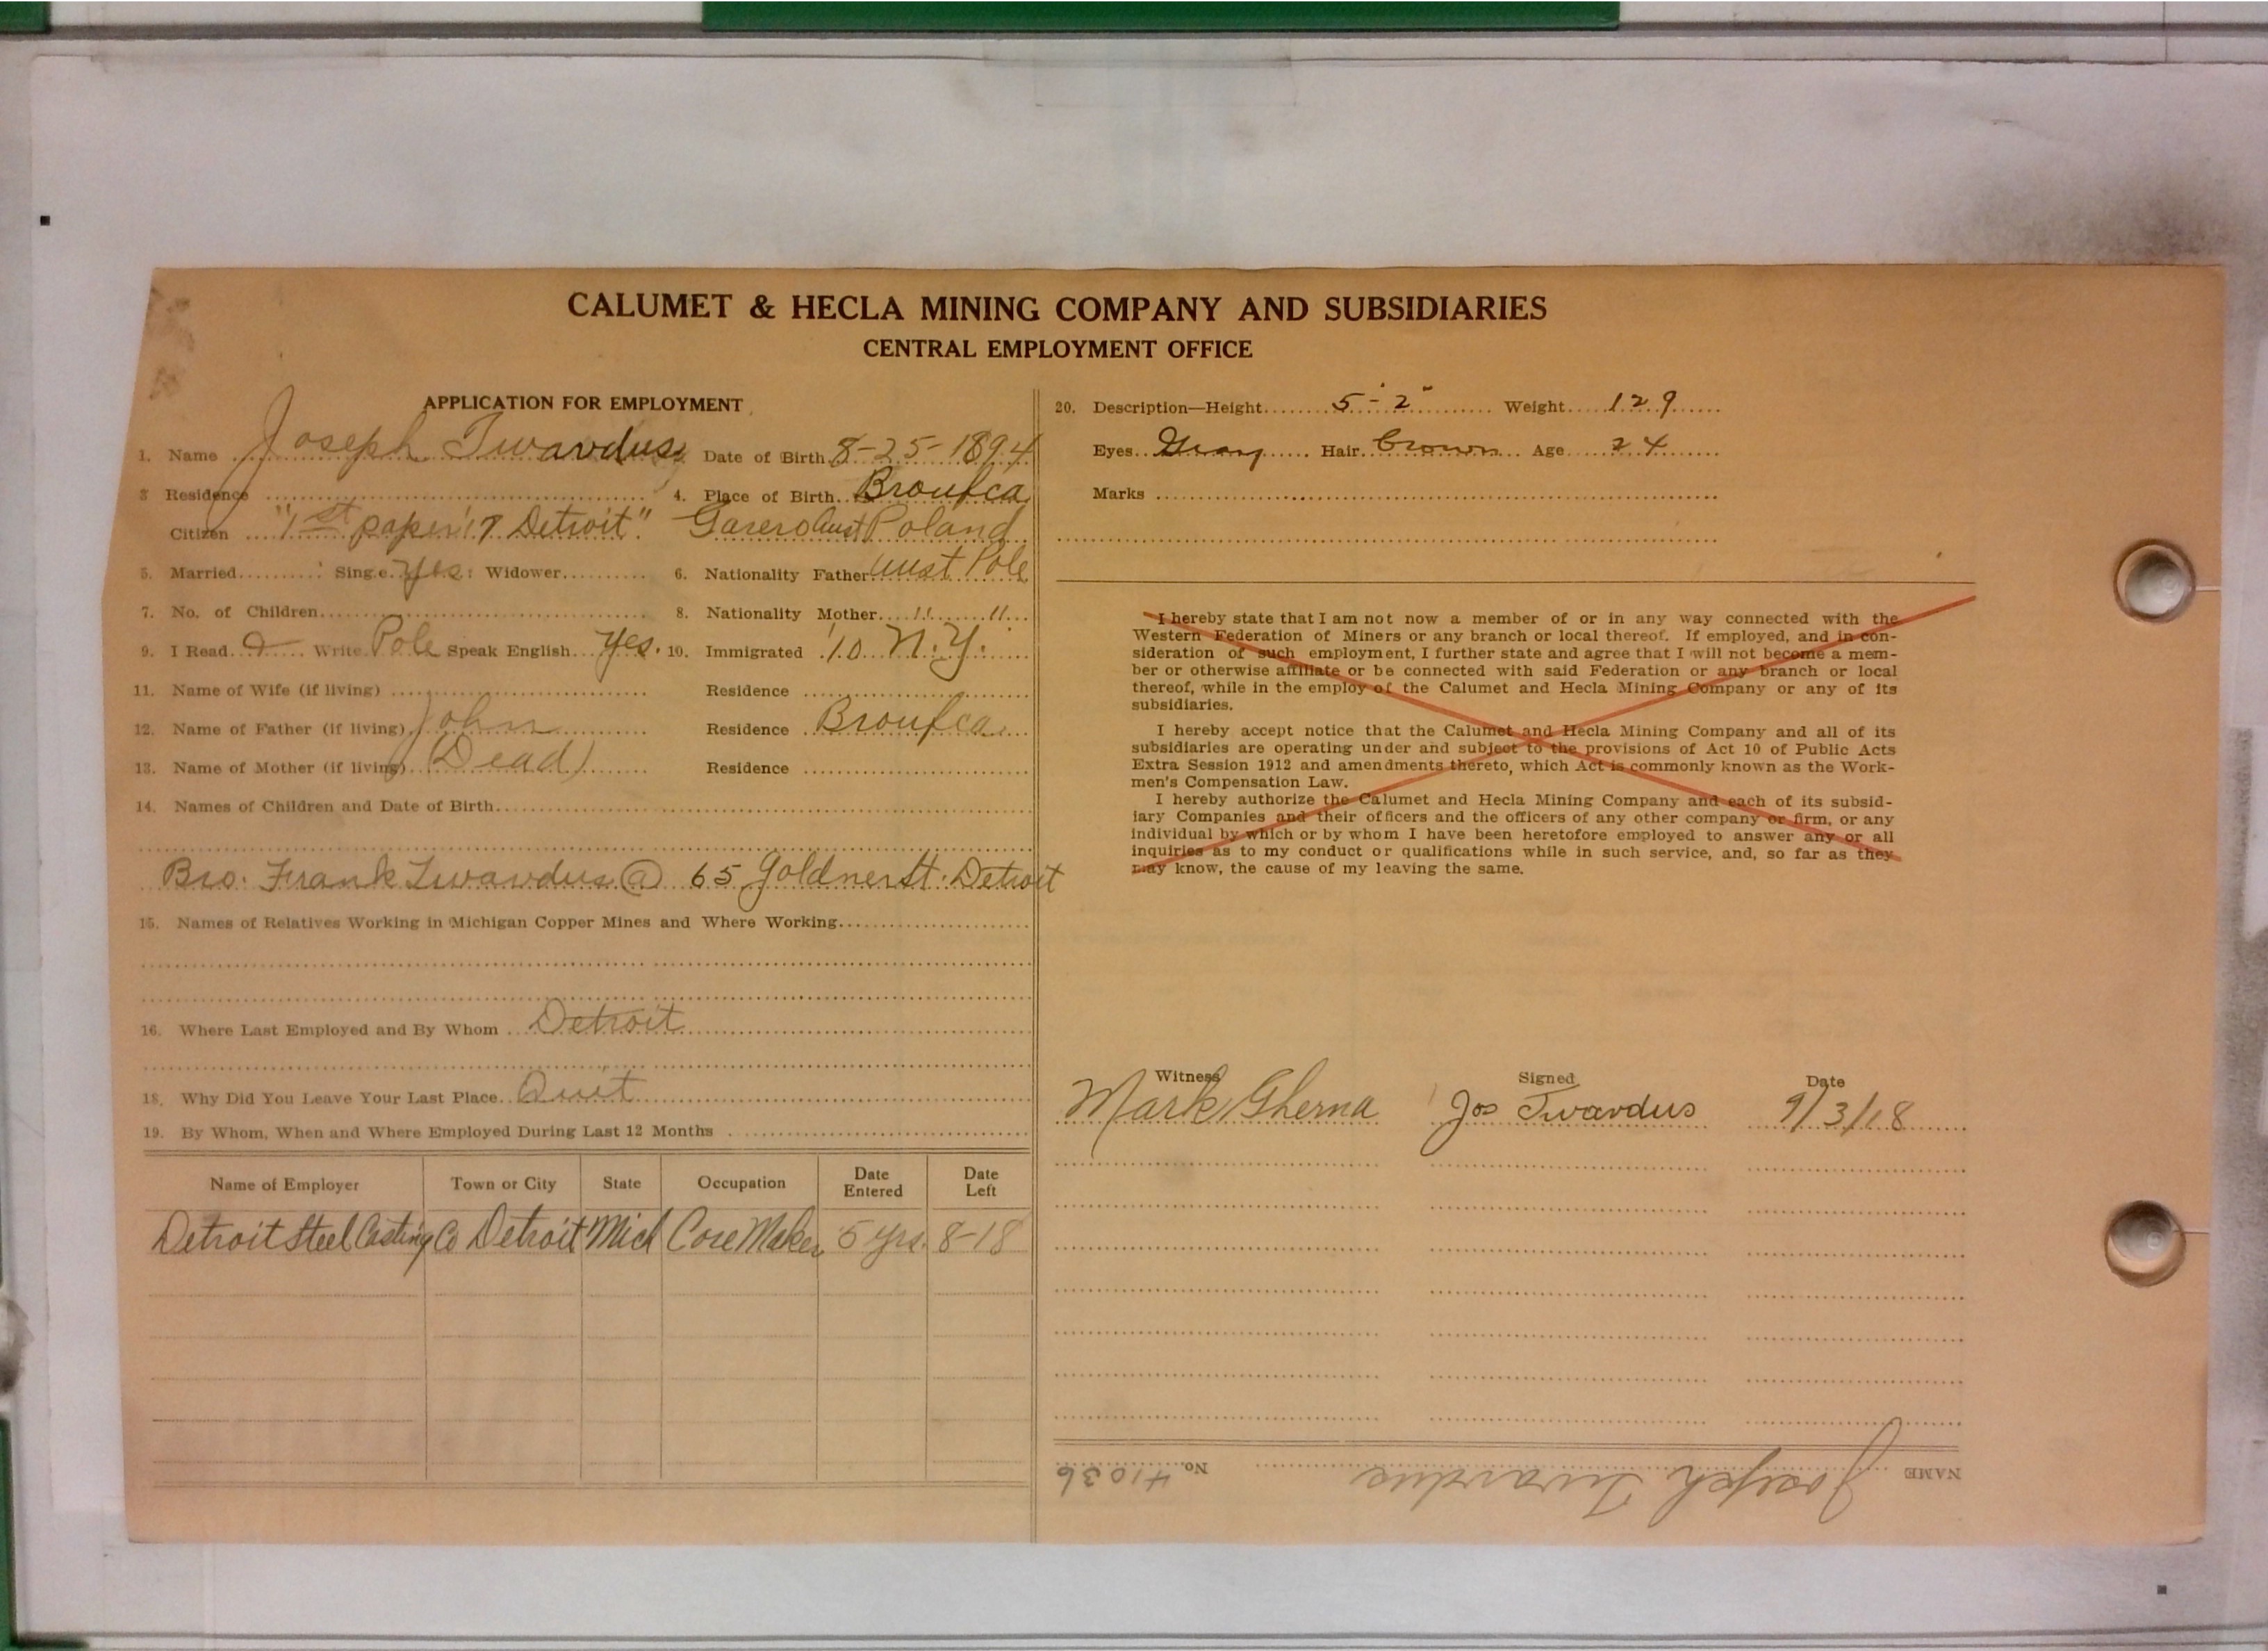 CALUMET & HECLA MINING COMPANY AND SUBSIDIARIES
CENTRAL EMPLOYMENT OFFICE
APPLICATION FOR EMPLOYMENT
1. Name Joseph Twardus Date of Birth 8-25-1894
3 Residence 4. Place of Birth Broufca
Citizen "1st paper '17 Detroit" Aust Poland
5. Married Single Yes Widower 6. Nationality Father Aust Pole
7. No. of Children 8. Nationality Mother " "
9. I Read & Write Pole Speak English Yes. 10. Immigrated '10 N.Y.
11. Name of Wife (if living) Residence
12. Name of Father (if living) John Residence Broufca
13. Name of Mother (if living) (Dead) Residence
14. Names of Children and Date of Birth
Bro. Frank Twardus @ 65 Goldner St. Detroit
15. Names of Relatives Working in Michigan Copper Mines and Where Working
16. Where Last Employed and By Whom Detroit
18. Why Did You Leave Your Last Place Quit
19. By Whom, When and Where Employed During Last 12 Months
Name of Employer Town or City State Occupation Date Entered Date Left
Detroit Steel Casting Co Detroit Mich Core Maker 5 yrs. 8-18
20. Description—Height 5'-2" Weight 129
Eyes Gray Hair Brown Age 24
Marks
I hereby state that I am not now a member of or in any way connected with the
Western Federation of Miners or any branch or local thereof. If employed, and in con-
sideration of such employment, I further state and agree that I will not become a mem-
ber or otherwise affiliate or be connected with said Federation or any branch or local
thereof, while in the employ of the Calumet and Hecla Mining Company or any of its
subsidiaries.
I hereby accept notice that the Calumet and Hecla Mining Company and all of its
subsidiaries are operating under and subject to the provisions of Act 10 of Public Acts
Extra Session 1912 and amendments thereto, which Act is commonly known as the Work-
men's Compensation Law.
I hereby authorize the Calumet and Hecla Mining Company and each of its subsid-
iary Companies and their officers and the officers of any other company or firm, or any
individual by which or by whom I have been heretofore employed to answer any or all
inquiries as to my conduct or qualifications while in such service, and, so far as they
may know, the cause of my leaving the same.
Witness Signed Date
Mark Gherna Jos Twardus 9/3/18
NAME Joseph Twardus No. 41036